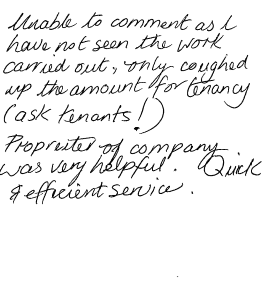 Unable to comment as I
have not seen the work
carried out, only coughed
up the amount for tenancy
(ask tenants!)
Propreiter of company
was very helpful. Quick
& efficient service.